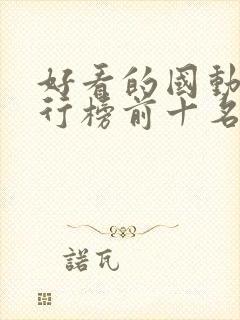 好看的國動
行榜前十名
諾瓦